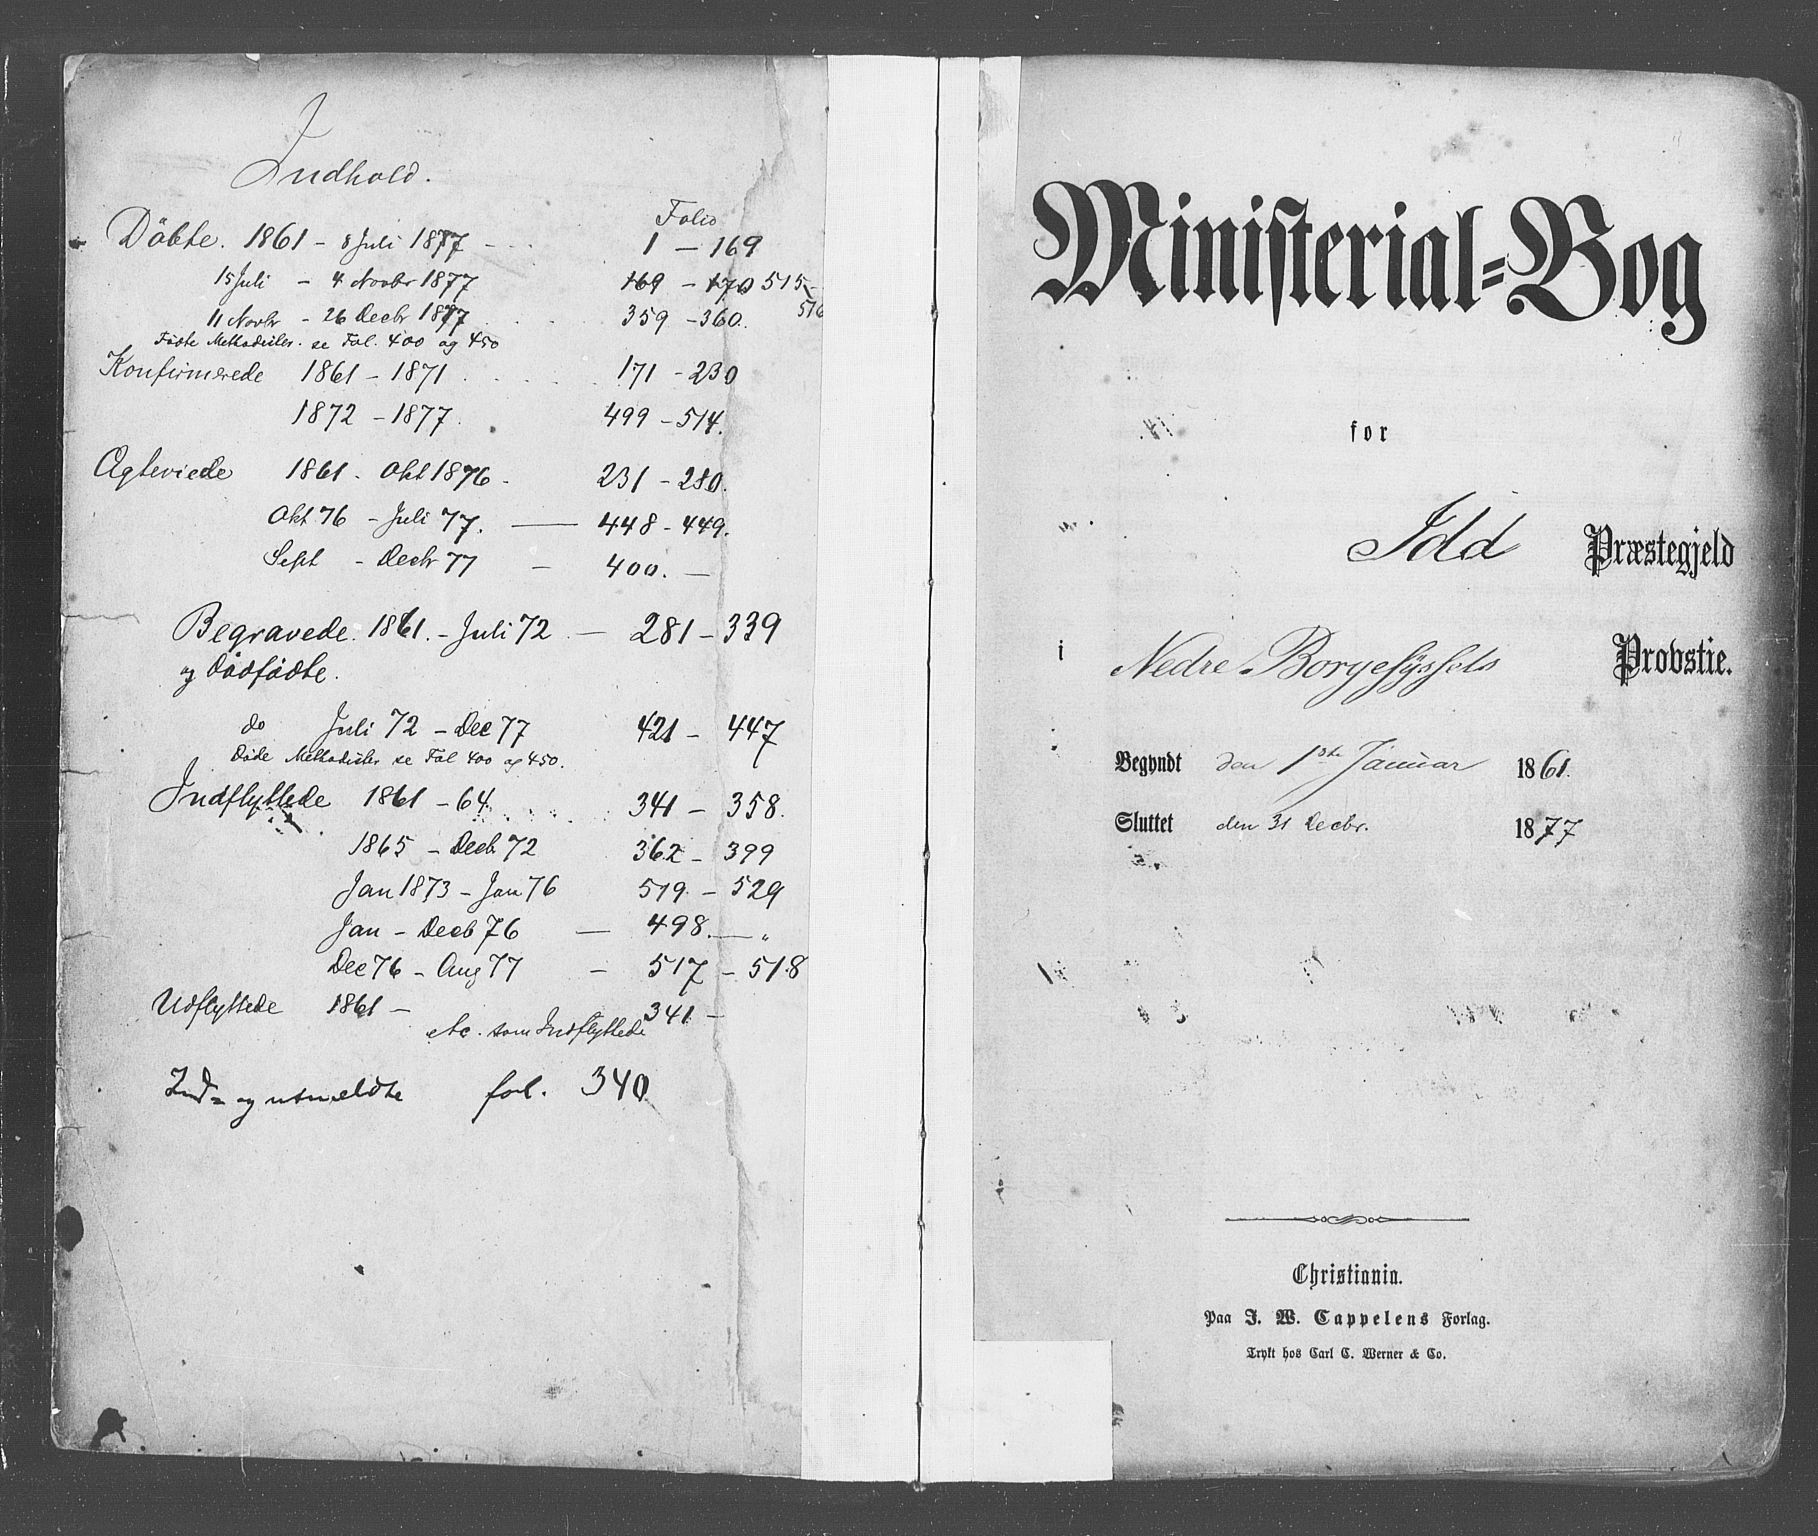 Indhold.
Folio
Döbte. 1861 - 8 Juli 1877 - . . 1 - 169
15 Juli - 4 Novbr 1877 169 - 170 515-
516
11 Novbr - 26 Decbr 1877 . . . 359 - 360.
Fødte Methodister. se Fol. 400 og 450
Konfirmerede 1861 - 1871 . . . . . 171 - 230
1872 - 1877. 499 - 514.
Agteviede 1861 - Okt 1876 - 231 - 280.
Okt 76 - Juli 77. — 448 - 449.
Sept - Decbr 77 — 400. —
Begravede. 1861. - Juli 72 — 281 - 339
og dödfödte.
do Juli 72 - Dec 77 421 - 447
Døde Methodister se Fol 400 og 450.
Indflyttede 1861 - 64. . . . . . 341 - 358.
1865 - Decb 72 362 - 399
Jan 1873 - Jan 76 519 - 529
Jan - Decb 76 — 498. — "
Dec 76 - Aug 77 — 517 - 518
Udflyttede 1861 - 341 -
etc. som Indflyttede
Ind= og utmeldte fol. 340
Ministerial=Bog
for
Idd Præstegjeld
i Nedre Borgesyssels Provstie.
Begyndt den 1ste Januar 1861.
Sluttet den 31 Decbr. 1877
Christiania.
Paa J. W. Cappelens Forlag.
Trykt hos Carl C. Werner & Co.